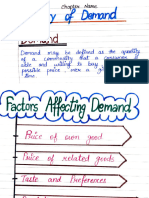 Chapter Name
y of Demand
Demand
Demand may be defined as the quantity
of a commodity that a consumer is
able and willing to buy, at each
possible price, over a given period of
time.
Factors Affecting Demand
Price of own good
Price of related goods
Taste and Preferences